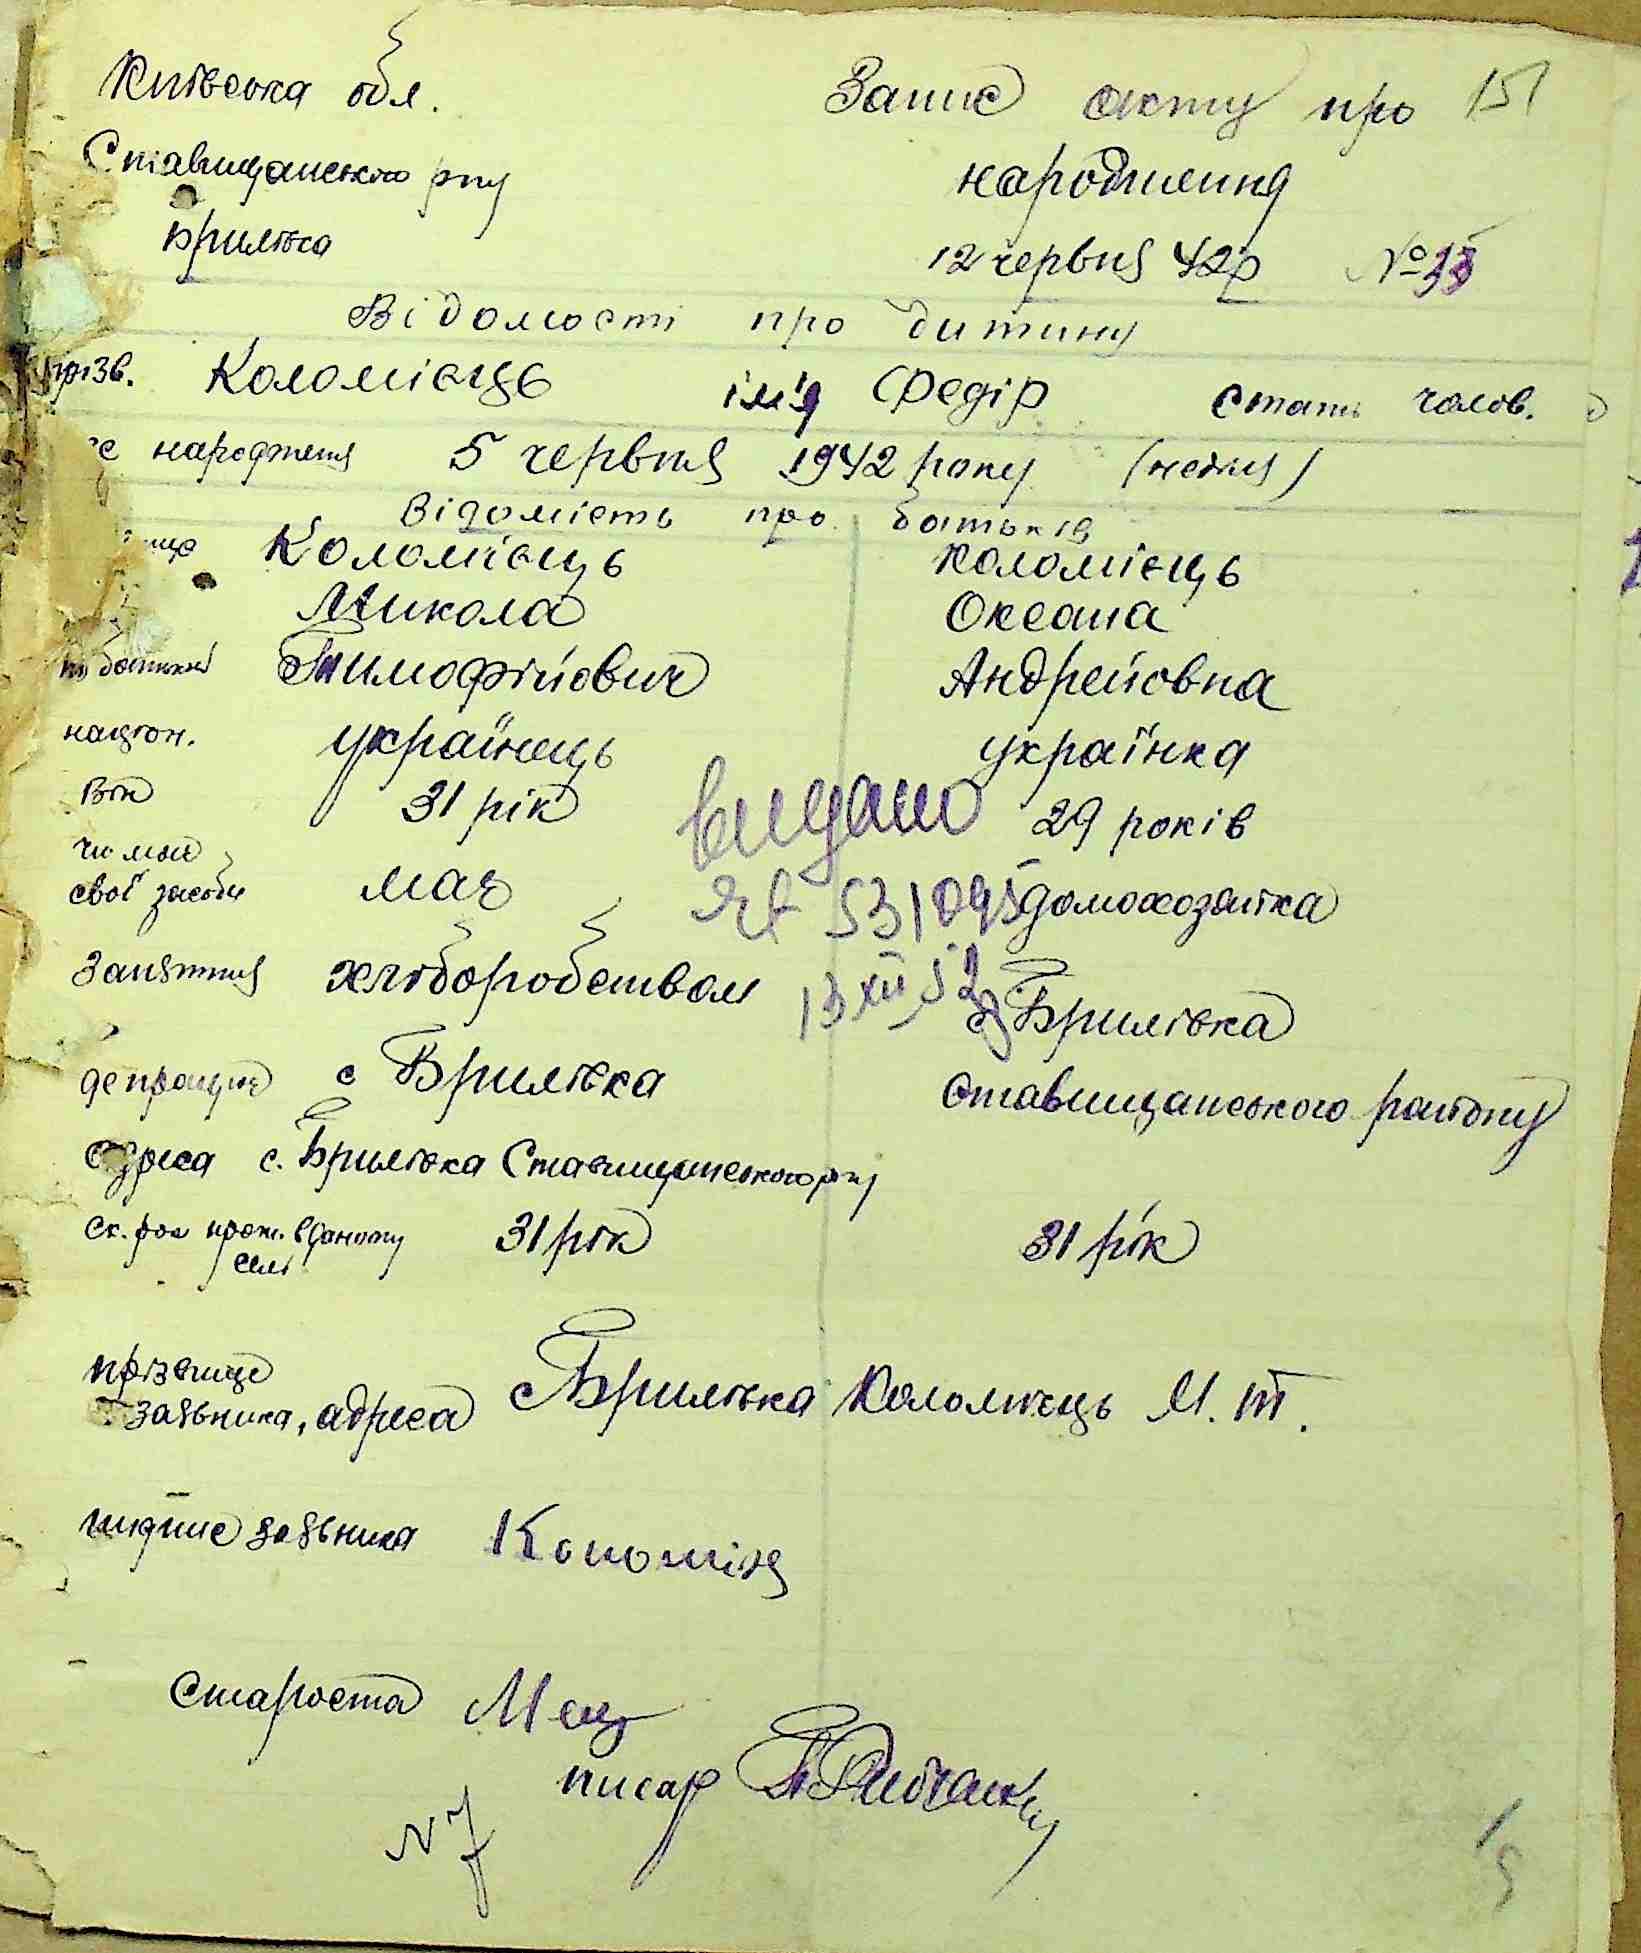 Київська обл.
Запис акту про 151
Ставищанського р-ну
народження
Брилівка
12 червня 42р №
Відомості про дитину
прізв. Коломієць ім'я Федір стать чолов.
народження 5 червня 1942 року
Відомість про батьків
Коломієць Коломієць
Микола Оксана
по батькові Тимофійович Андрейовна
націон. українець українка
вік 31 рік 29 років
видано
чи має
свої засоби має домохозяйка
ЯЕ 531095
заняття хліборобством
13 XII 52 с Брилівка
де працює с Брилівка Ставищанського району
адреса с. Брилівка Ставищанського р-ну
ск. рок. прож. в даному 31 рік 31 рік
селі
прізвище
заявника, адреса с Брилівка Коломієць М. Т.
підпис заявника Коломієц
Староста
писар
N 7